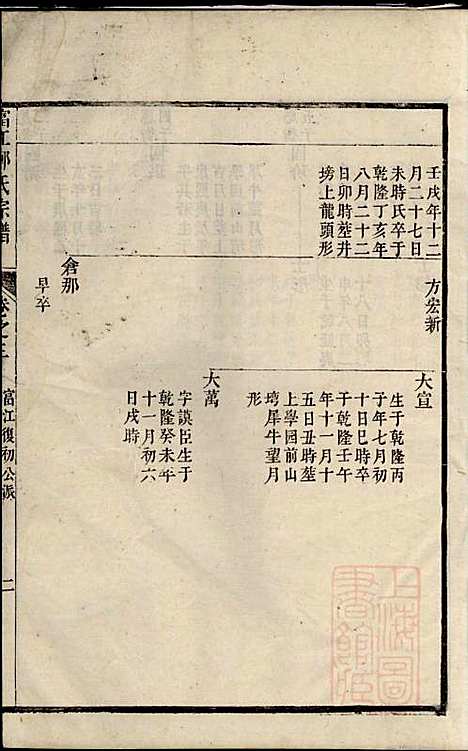 壬戌年十二
月二十七日
未時氏卒于
乾隆丁亥年
八月二十二
日卯時塟井
塝上龍頭形
方宏新
倉那
早卒
大宣
生于乾隆丙
子年七月初
十日巳時卒
于乾隆壬午
年十一月十
五日丑時塟
上學園前山
塆犀牛望月
形
大萬
字謨臣生于
乾隆癸未年
十一月初六
日戌時
氏宗譜
卷之三
富江復初公派
二
上海圖
書館藏